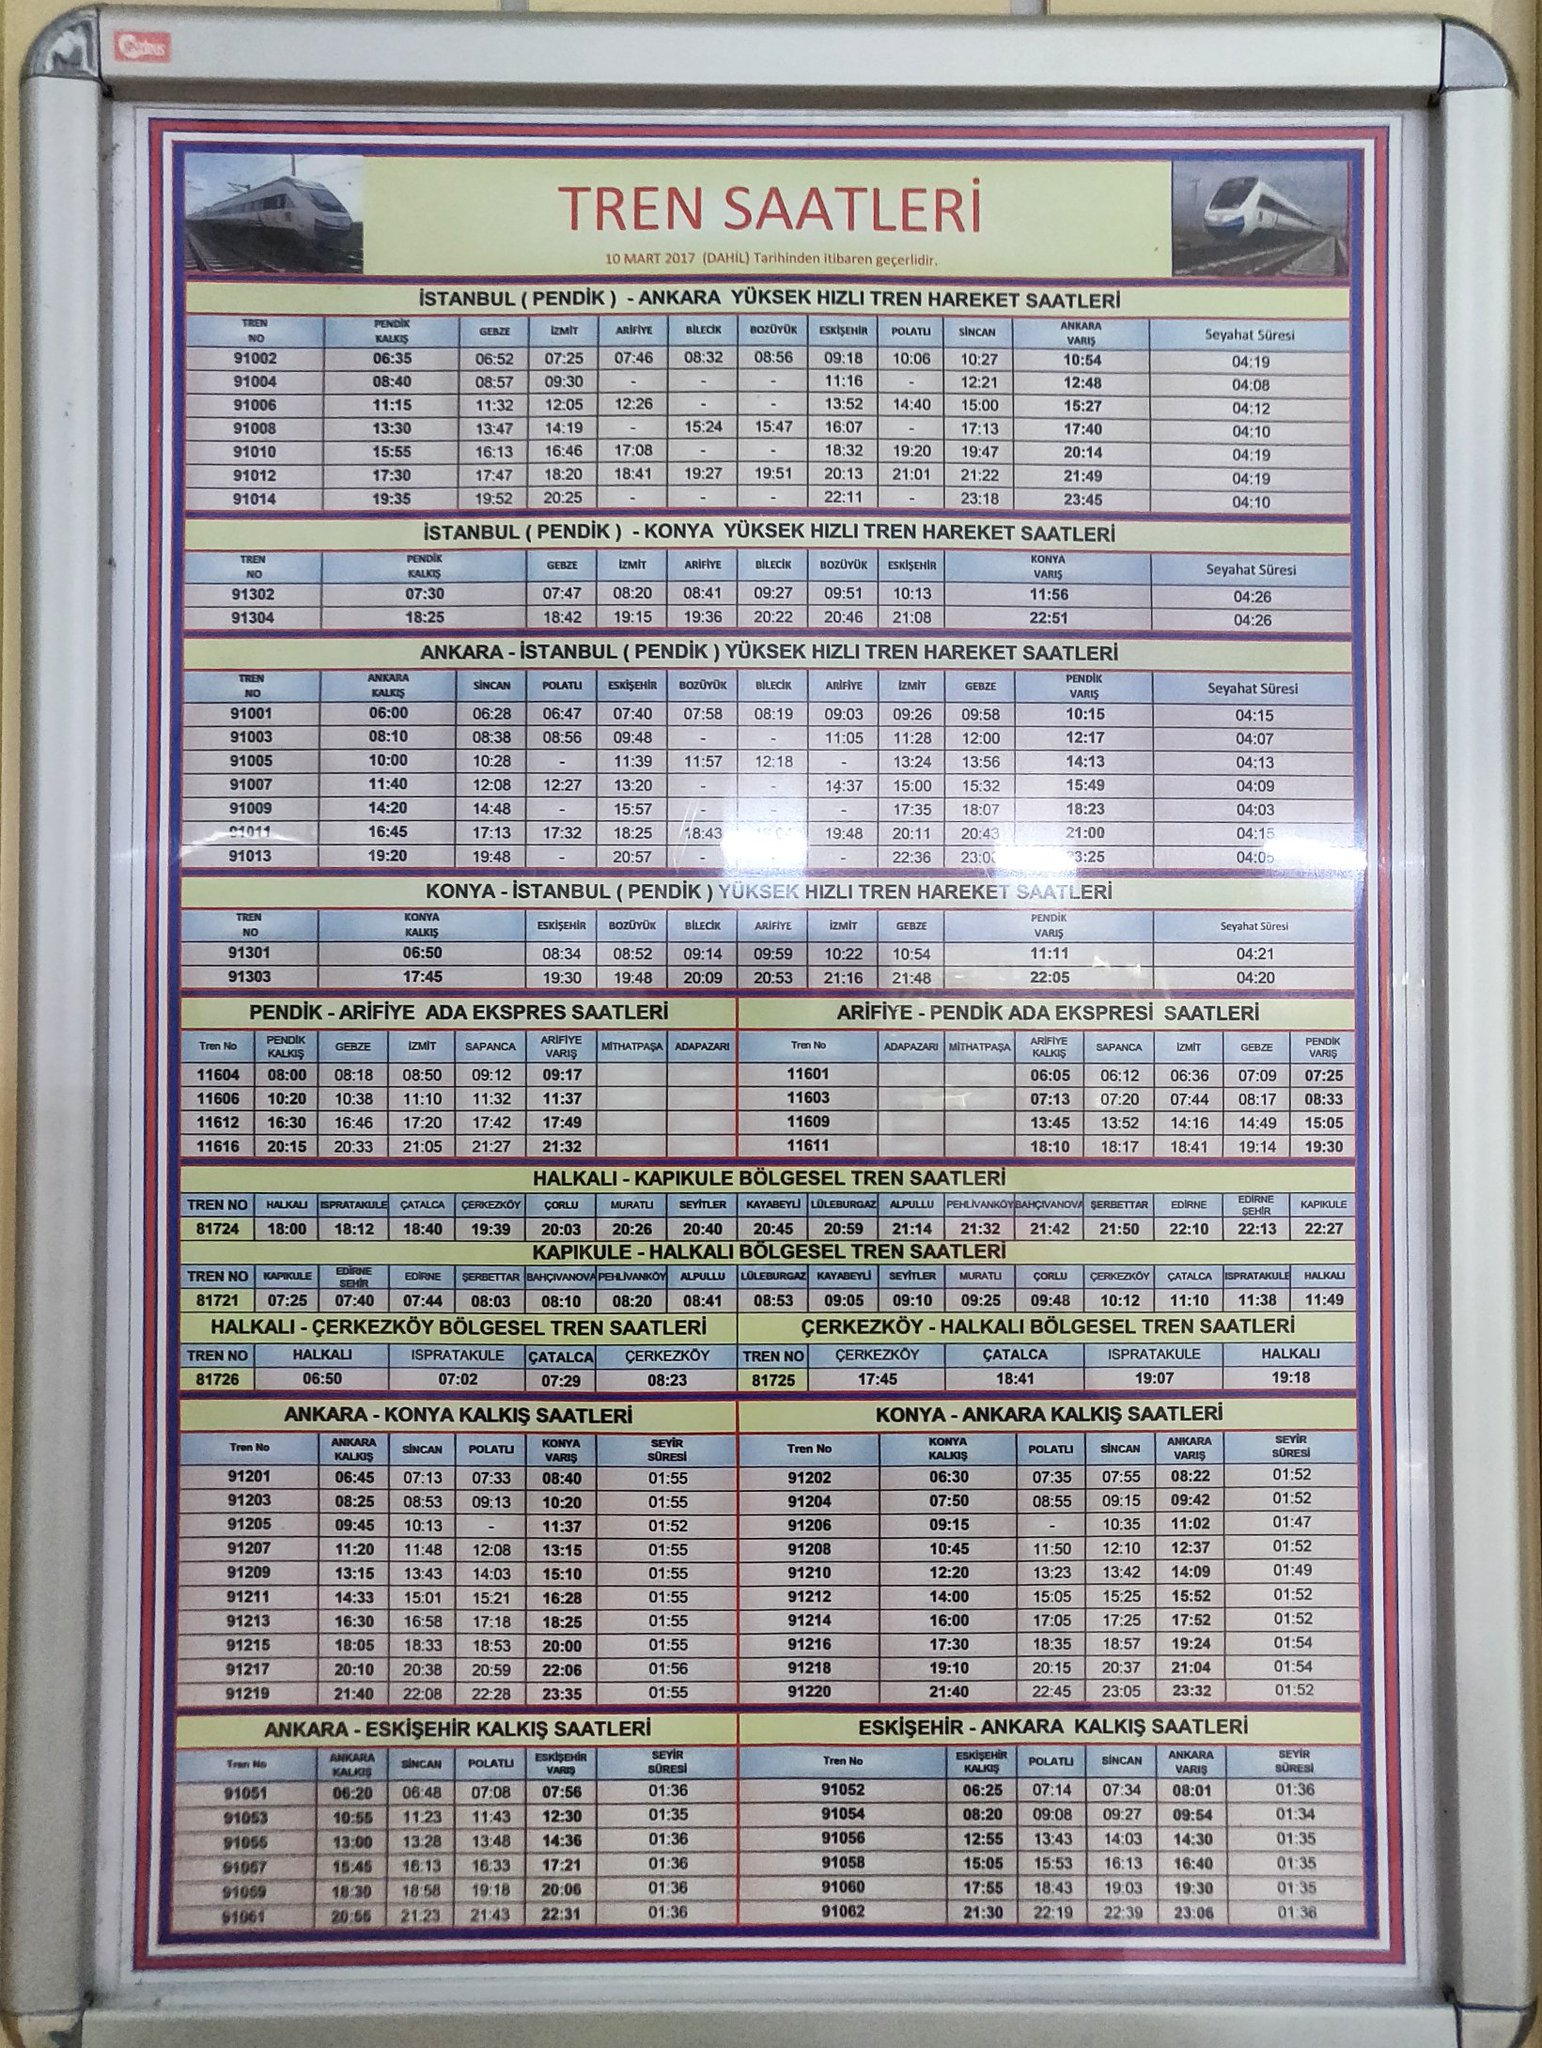 TREN SAATLERİ
10 MART 2017 (DAHİL) Tarihinden itibaren geçerlidir.
İSTANBUL ( PENDİK ) - ANKARA YÜKSEK HIZLI TREN HAREKET SAATLERİ
TREN NO PENDİK KALKIŞ GEBZE İZMİT ARİFİYE BİLECİK BOZÜYÜK ESKİŞEHİR POLATLI SİNCAN ANKARA VARIŞ Seyahat Süresi
91002 06:35 06:52 07:25 07:46 08:32 08:56 09:18 10:06 10:27 10:54 04:19
91004 08:40 08:57 09:30 - - - 11:16 - 12:21 12:48 04:08
91006 11:15 11:32 12:05 12:26 - - 13:52 14:40 15:00 15:27 04:12
91008 13:30 13:47 14:19 - 15:24 15:47 16:07 - 17:13 17:40 04:10
91010 15:55 16:13 16:46 17:08 - - 18:32 19:20 19:47 20:14 04:19
91012 17:30 17:47 18:20 18:41 19:27 19:51 20:13 21:01 21:22 21:49 04:19
91014 19:35 19:52 20:25 - - - 22:11 - 23:18 23:45 04:10
İSTANBUL ( PENDİK ) - KONYA YÜKSEK HIZLI TREN HAREKET SAATLERİ
TREN NO PENDİK KALKIŞ GEBZE İZMİT ARİFİYE BİLECİK BOZÜYÜK ESKİŞEHİR KONYA VARIŞ Seyahat Süresi
91302 07:30 07:47 08:20 08:41 09:27 09:51 10:13 11:56 04:26
91304 18:25 18:42 19:15 19:36 20:22 20:46 21:08 22:51 04:26
ANKARA - İSTANBUL ( PENDİK ) YÜKSEK HIZLI TREN HAREKET SAATLERİ
TREN NO ANKARA KALKIŞ SİNCAN POLATLI ESKİŞEHİR BOZÜYÜK BİLECİK ARİFİYE İZMİT GEBZE PENDİK VARIŞ Seyahat Süresi
91001 06:00 06:28 06:47 07:40 07:58 08:19 09:03 09:26 09:58 10:15 04:15
91003 08:10 08:38 08:56 09:48 - - 11:05 11:28 12:00 12:17 04:07
91005 10:00 10:28 - 11:39 11:57 12:18 - 13:24 13:56 14:13 04:13
91007 11:40 12:08 12:27 13:20 - - 14:37 15:00 15:32 15:49 04:09
91009 14:20 14:48 - 15:57 - - - 17:35 18:07 18:23 04:03
91011 16:45 17:13 17:32 18:25 18:43 19:48 20:11 20:43 21:00 04:15
91013 19:20 19:48 - 20:57 - - - 22:36 04:05
KONYA - İSTANBUL ( PENDİK ) YÜKSEK HIZLI TREN HAREKET SAATLERİ
TREN NO KONYA KALKIŞ ESKİŞEHİR BOZÜYÜK BİLECİK ARİFİYE İZMİT GEBZE PENDİK VARIŞ Seyahat Süresi
91301 06:50 08:34 08:52 09:14 09:59 10:22 10:54 11:11 04:21
91303 17:45 19:30 19:48 20:09 20:53 21:16 21:48 22:05 04:20
PENDİK - ARİFİYE ADA EKSPRES SAATLERİ
Tren No PENDİK KALKIŞ GEBZE İZMİT SAPANCA ARİFİYE VARIŞ MİTHATPAŞA ADAPAZARI
11604 08:00 08:18 08:50 09:12 09:17
11606 10:20 10:38 11:10 11:32 11:37
11612 16:30 16:46 17:20 17:42 17:49
11616 20:15 20:33 21:05 21:27 21:32
ARİFİYE - PENDİK ADA EKSPRESİ SAATLERİ
Tren No ADAPAZARI MİTHATPAŞA ARİFİYE KALKIŞ SAPANCA İZMİT GEBZE PENDİK VARIŞ
11601 06:05 06:12 06:36 07:09 07:25
11603 07:13 07:20 07:44 08:17 08:33
11609 13:45 13:52 14:16 14:49 15:05
11611 18:10 18:17 18:41 19:14 19:30
HALKALI - KAPIKULE BÖLGESEL TREN SAATLERİ
TREN NO HALKALI ISPRATAKULE ÇATALCA ÇERKEZKÖY ÇORLU MURATLI SEYİTLER KAYABEYLİ LÜLEBURGAZ ALPULLU PEHLİVANKÖY BAHÇIVANOVA ŞERBETTAR EDİRNE EDİRNE ŞEHİR KAPIKULE
81724 18:00 18:12 18:40 19:39 20:03 20:26 20:40 20:45 20:59 21:14 21:32 21:42 21:50 22:10 22:13 22:27
KAPIKULE - HALKALI BÖLGESEL TREN SAATLERİ
TREN NO KAPIKULE EDİRNE ŞEHİR EDİRNE ŞERBETTAR BAHÇIVANOVA PEHLİVANKÖY ALPULLU LÜLEBURGAZ KAYABEYLİ SEYİTLER MURATLI ÇORLU ÇERKEZKÖY ÇATALCA ISPRATAKULE HALKALI
81721 07:25 07:40 07:44 08:03 08:10 08:20 08:41 08:53 09:05 09:10 09:25 09:48 10:12 11:10 11:38 11:49
HALKALI - ÇERKEZKÖY BÖLGESEL TREN SAATLERİ
TREN NO HALKALI ISPRATAKULE ÇATALCA ÇERKEZKÖY
81726 06:50 07:02 07:29 08:23
ÇERKEZKÖY - HALKALI BÖLGESEL TREN SAATLERİ
TREN NO ÇERKEZKÖY ÇATALCA ISPRATAKULE HALKALI
81725 17:45 18:41 19:07 19:18
ANKARA - KONYA KALKIŞ SAATLERİ
Tren No ANKARA KALKIŞ SİNCAN POLATLI KONYA VARIŞ SEYİR SÜRESİ
91201 06:45 07:13 07:33 08:40 01:55
91203 08:25 08:53 09:13 10:20 01:55
91205 09:45 10:13 - 11:37 01:52
91207 11:20 11:48 12:08 13:15 01:55
91209 13:15 13:43 14:03 15:10 01:55
91211 14:33 15:01 15:21 16:28 01:55
91213 16:30 16:58 17:18 18:25 01:55
91215 18:05 18:33 18:53 20:00 01:55
91217 20:10 20:38 20:59 22:06 01:56
91219 21:40 22:08 22:28 23:35 01:55
KONYA - ANKARA KALKIŞ SAATLERİ
Tren No KONYA KALKIŞ POLATLI SİNCAN ANKARA VARIŞ SEYİR SÜRESİ
91202 06:30 07:35 07:55 08:22 01:52
91204 07:50 08:55 09:15 09:42 01:52
91206 09:15 - 10:35 11:02 01:47
91208 10:45 11:50 12:10 12:37 01:52
91210 12:20 13:23 13:42 14:09 01:49
91212 14:00 15:05 15:25 15:52 01:52
91214 16:00 17:05 17:25 17:52 01:52
91216 17:30 18:35 18:57 19:24 01:54
91218 19:10 20:15 20:37 21:04 01:54
91220 21:40 22:45 23:05 23:32 01:52
ANKARA - ESKİŞEHİR KALKIŞ SAATLERİ
Tren No ANKARA KALKIŞ SİNCAN POLATLI ESKİŞEHİR VARIŞ SEYİR SÜRESİ
91051 06:20 06:48 07:08 07:56 01:36
91053 10:55 11:23 11:43 12:30 01:35
91055 13:00 13:28 13:48 14:36 01:36
91057 15:45 16:13 16:33 17:21 01:36
91059 18:30 18:58 19:18 20:06 01:36
91061 20:55 21:23 21:43 22:31 01:36
ESKİŞEHİR - ANKARA KALKIŞ SAATLERİ
Tren No ESKİŞEHİR KALKIŞ POLATLI SİNCAN ANKARA VARIŞ SEYİR SÜRESİ
91052 06:25 07:14 07:34 08:01 01:36
91054 08:20 09:08 09:27 09:54 01:34
91056 12:55 13:43 14:03 14:30 01:35
91058 15:05 15:53 16:13 16:40 01:35
91060 17:55 18:43 19:03 19:30 01:35
91062 21:30 22:19 22:39 23:06 01:36